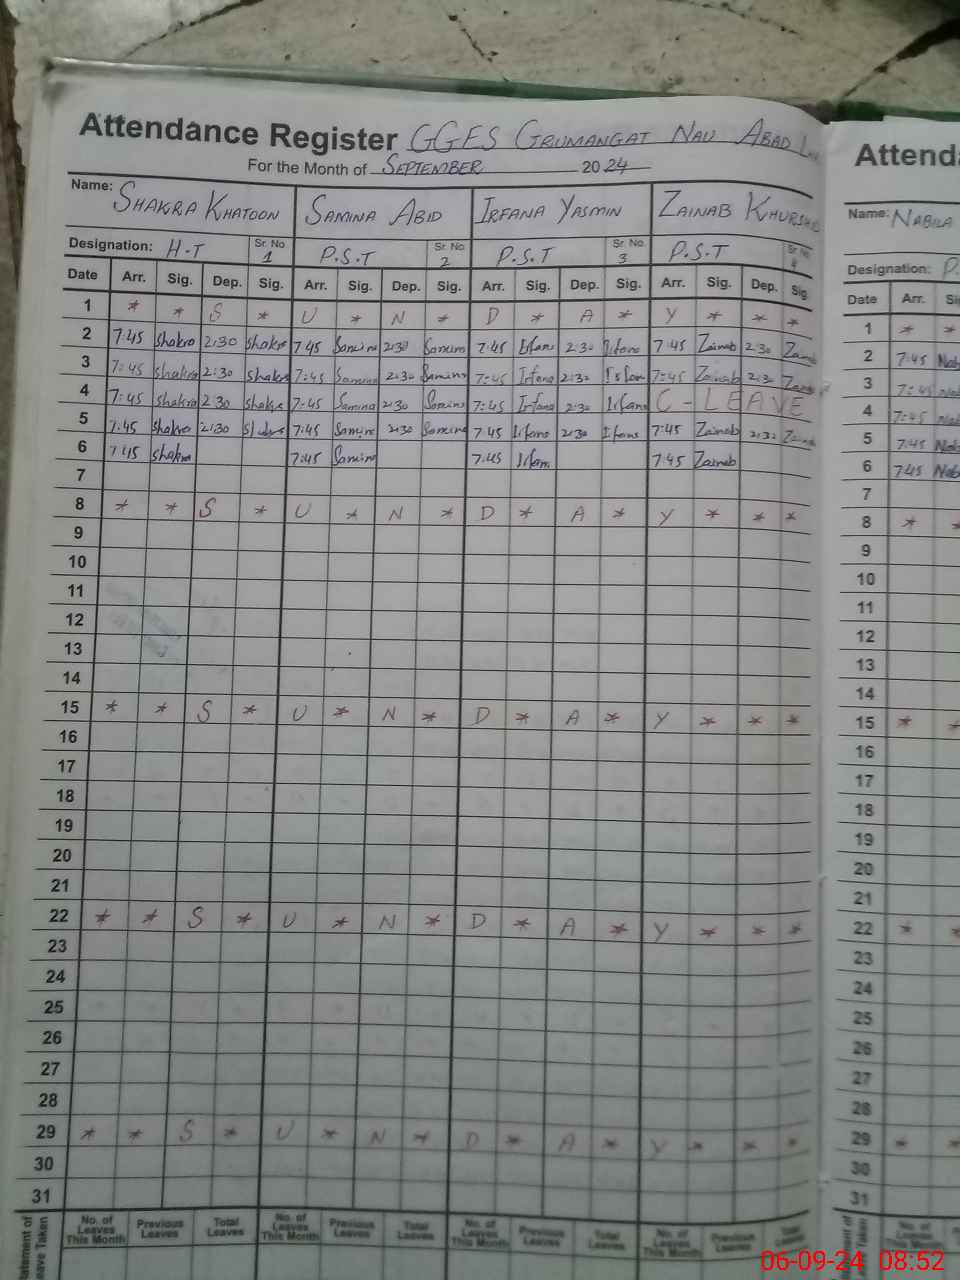 Attendance Register GGES GRUMANGAT NAU ABAD
For the Month of SEPTEMBER 2024
Name: SHAKRA KHATOON SAMINA ABID IRFANA YASMIN ZAINAB KHURSHID
Designation: H-T Sr. No 1 P.S.T Sr. No 2 P.S.T Sr. No 3 P.S.T Sr. No 4
Date Arr. Sig. Dep. Sig. Arr. Sig. Dep. Sig. Arr. Sig. Dep. Sig. Arr. Sig. Dep. Sig.
1 * * S * U * N * D * A * Y * * *
2 7:45 Shakra 2:30 Shakra 7:45 Samina 2:30 Samina 7:45 Irfana 2:30 Irfana 7:45 Zainab 2:30 Zainab
3 7:45 Shakra 2:30 Shakra 7:45 Samina 2:30 Samina 7:45 Irfana 2:30 Irfana 7:45 Zainab 2:30 Zainab
4 7:45 Shakra 2:30 Shakra 7:45 Samina 2:30 Samina 7:45 Irfana 2:30 Irfana C-LEAVE
5 7:45 Shakra 2:30 Shakra 7:45 Samina 2:30 Samina 7:45 Irfana 2:30 Irfana 7:45 Zainab 2:30 Zainab
6 7:45 Shakra 7:45 Samina 7:45 Irfana 7:45 Zainab
7
8 * * S * U * N * D * A * Y * * *
9
10
11
12
13
14
15 * * S * U * N * D * A * Y * * *
16
17
18
19
20
21
22 * * S * U * N * D * A * Y * * *
23
24
25
26
27
28
29 * * S * U * N * D * A * Y * * *
30
31
No. of Leaves This Month Previous Leaves Total Leaves No. of Leaves This Month Previous Leaves Total Leaves No. of Leaves This Month Previous Leaves Total Leaves No. of Leaves This Month Previous Leaves Total Leaves
Name: NABILA
Designation: P.
Date Arr.
1 * *
2 7:45
3 7:45
4 7:45
5 7:45
6 7:45
7
8 * *
9
10
11
12
13
14
15 * *
16
17
18
19
20
21
22 * *
23
24
25
26
27
28
29 * *
30
31
No. of Leaves This Month
06-09-24 08:52